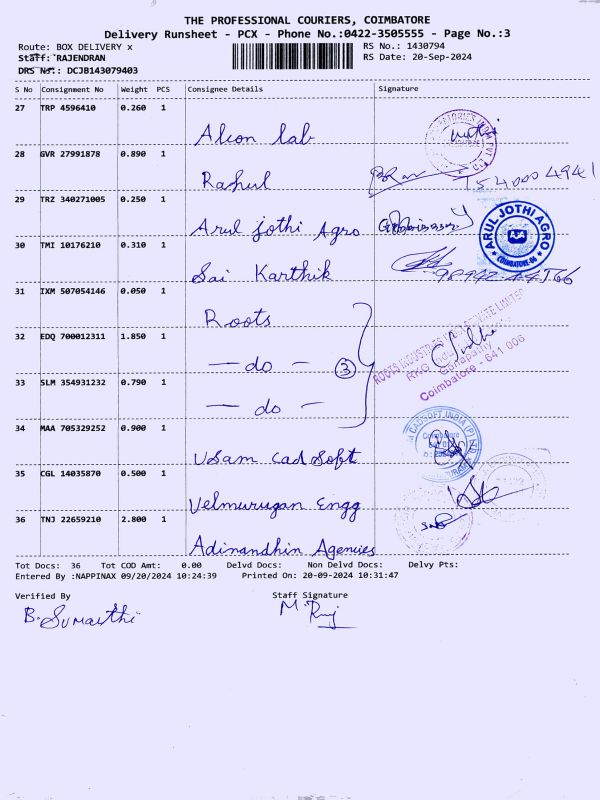 THE PROFESSIONAL COURIERS, COIMBATORE
Delivery Runsheet - PCX - Phone No.:0422-3505555 - Page No.:3
Route: BOX DELIVERY x RS No.: 1430794
Staff: RAJENDRAN RS Date: 20-Sep-2024
DRS No.: DCJB143079403
S No Consignment No Weight PCS Consignee Details Signature
27 TRP 4596410 0.260 1 Alcon lab
28 GVR 27991878 0.890 1 Rahul
29 TRZ 340271005 0.250 1 Arul jothi Agro ARUL JOTHI AGRO COIMBATORE-
30 TMI 10176210 0.310 1 Sai Karthik
31 IXM 507054146 0.050 1 Roots
32 EDQ 700012311 1.850 1 — do — 3 ROOTS INDUSTRIES LIMITED
33 SLM 354931232 0.790 1 — do — Coimbatore - 641 006
34 MAA 705329252 0.900 1 Usam Cad Soft CADSOFT INDIA (P) LTD
35 CGL 14035870 0.500 1 Velmurugan Engg
36 TNJ 22659210 2.800 1 Adinandhin Agencies
Tot Docs: 36 Tot COD Amt: 0.00 Delvd Docs: Non Delvd Docs: Delvy Pts:
Entered By :NAPPINAX 09/20/2024 10:24:39 Printed On: 20-09-2024 10:31:47
Verified By Staff Signature
B. Sumaithi M. Raj